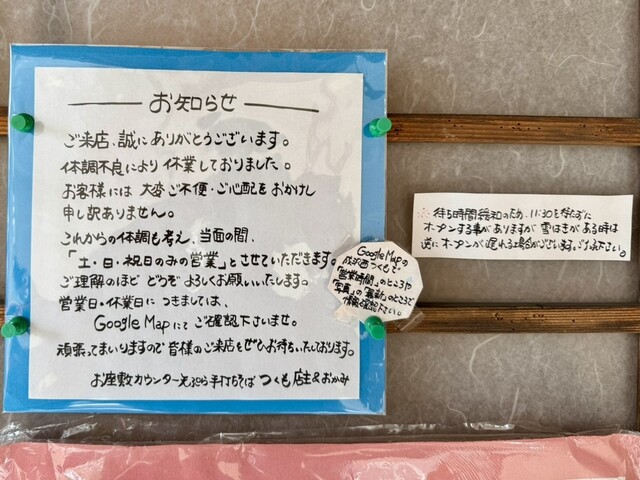 お知らせ
ご来店、誠にありがとうございます。
体調不良により休業しておりました。
お客様には大変ご不便・ご心配をおかけし
申し訳ありません。
これからの体調も考え、当面の間、
「土・日・祝日のみの営業」とさせていただきます。
ご理解のほどどうぞよろしくお願いいたします。
営業日・休業日につきましては、
Google Mapにてご確認下さいませ。
頑張ってまいりますので皆様のご来店をぜひお待ちいたしております。
お座敷カウンター天ぷら手打ちそば つくも 店主&おかみ
Google Mapの
つくもで
「営業時間」のところや
「写真」の「最新」のところで
情報を確認下さい。
※待ち時間緩和のため、11:30を待たずに
オープンする事がありますが 雪はきがある時は
逆にオープンが遅れる場合がございます。ご了承下さい。